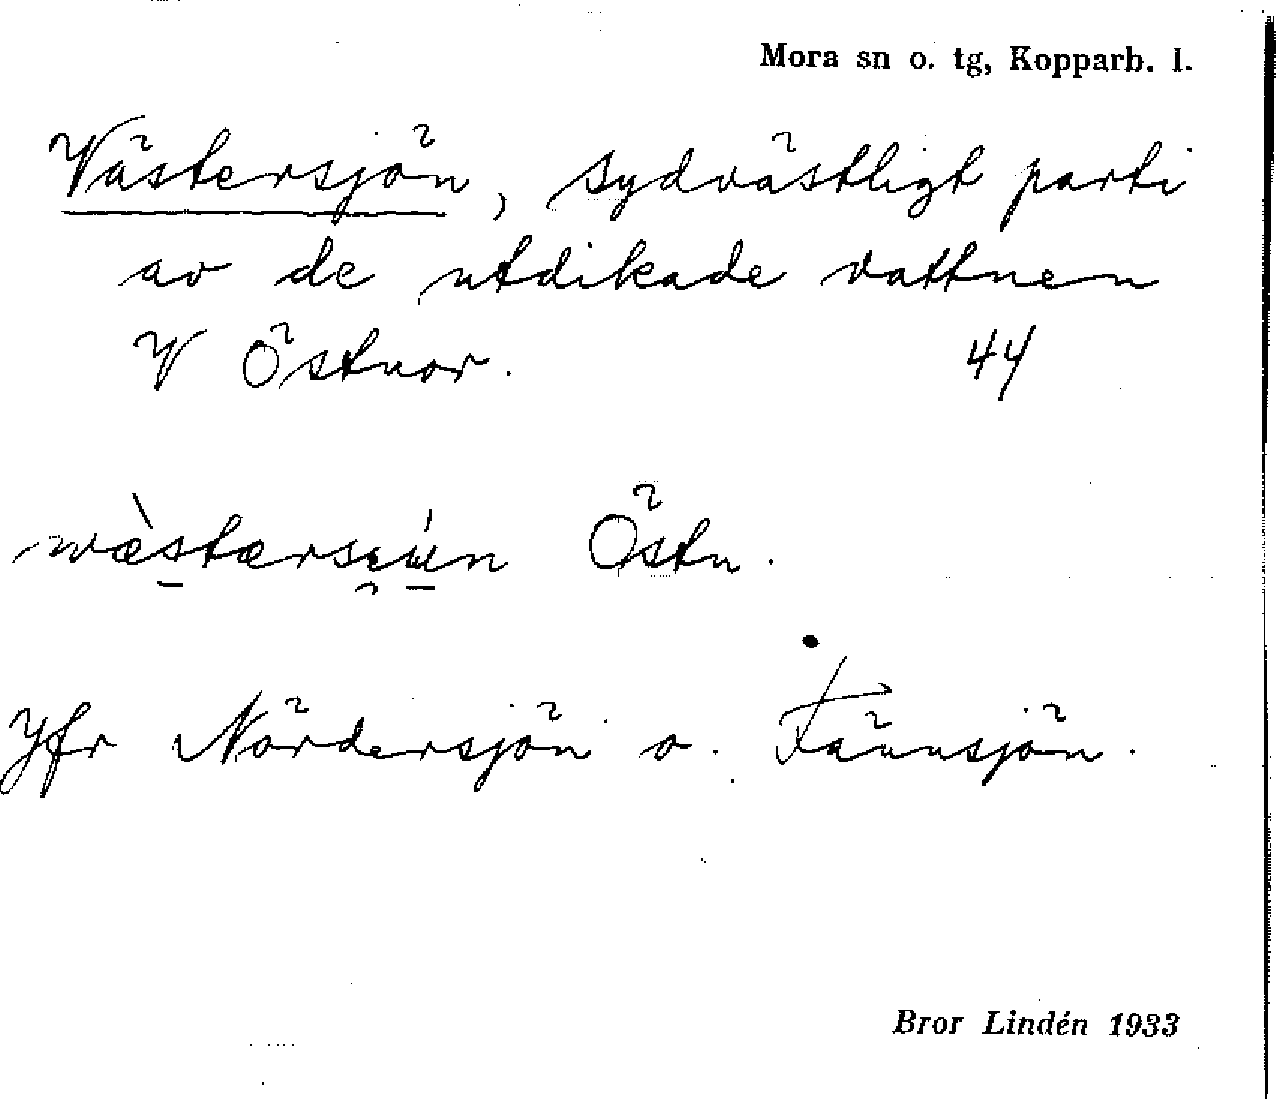 Mora sn o. tg, Kopparb. l.
Västersjön, sydvästligt parti
av de utdikade vattnen
V Östnor. 44
Östn.
Jfr Nördersjön o. Fännsjön.
Bror Lindén 1933